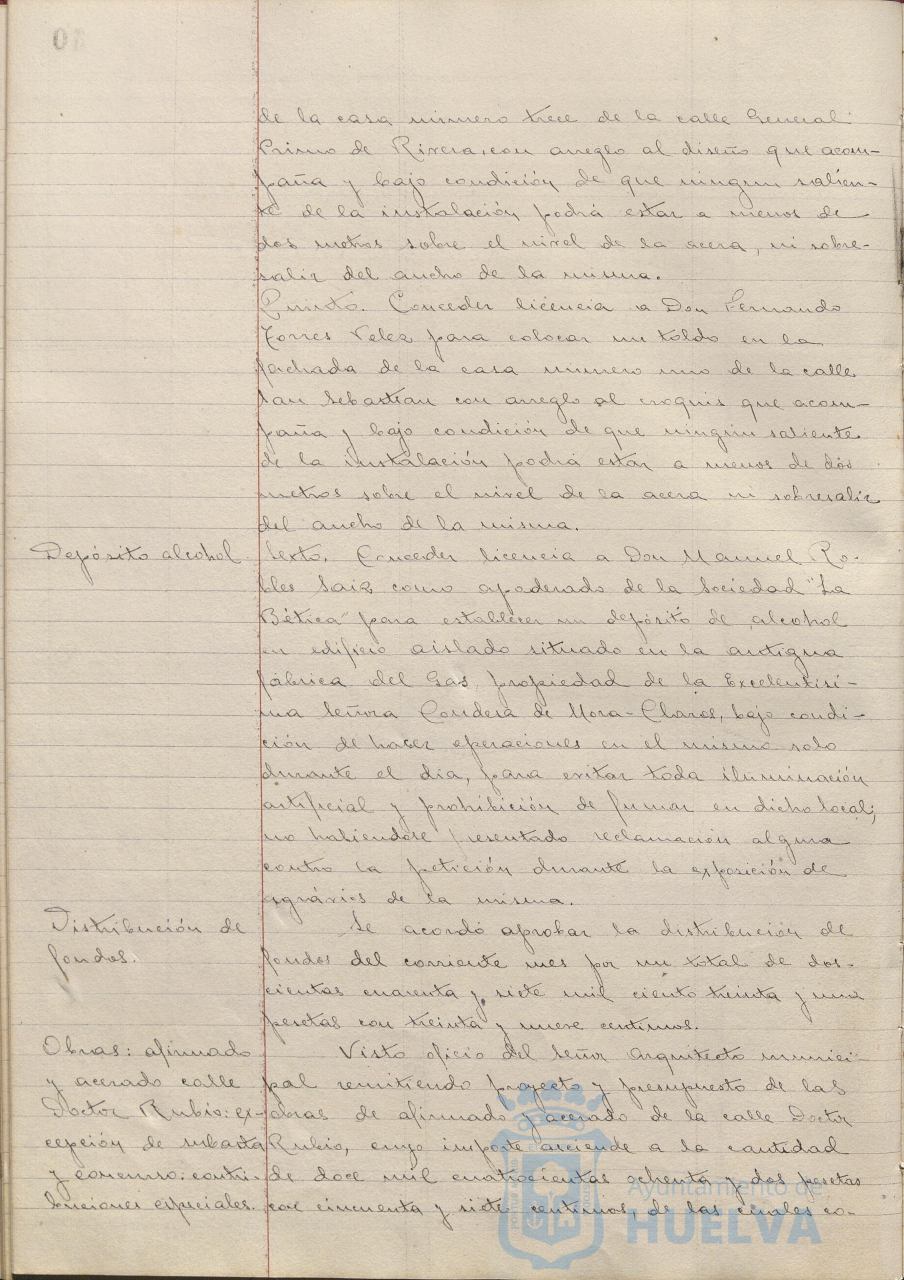 de la casa número trece de la calle General
Primo de Rivera, con arreglo al diseño que acom-
paña y bajo condición de que ningun salien-
te de la instalación podrá estar a menos de
dos metros sobre el nivel de la acera, ni sobre-
salir del ancho de la misma.
Quinto. Conceder licencia a Don Fernando
Torres Velez para colocar un toldo en la
fachada de la casa número uno de la calle
San Sebastian con arreglo al croquis que acom-
paña y bajo condición de que ningún saliente
de la instalación podrá estar a menos de dos
metros sobre el nivel de la acera ni sobresalir
del ancho de la misma.
Depósito alcohol
Sexto. Conceder licencia a Don Manuel Ro-
bles Saiz como apoderado de la Sociedad "La
Bética" para establecer un depósito de alcohol
en edificio aislado situado en la antigua
fábrica del Gas, propiedad de la Excelentísi-
ma Señora Condesa de Mora-Claros, bajo condi-
ción de hacer operaciones en el mismo solo
durante el dia, para evitar toda iluminación
artificial y prohibición de fumar en dicho local;
no habiendose presentado reclamación alguna
contra la petición durante la exposición de
agravios de la misma.
Distribución de
fondos.
Se acordó aprobar la distribución de
fondos del corriente mes por un total de dos-
cientas cuarenta y siete mil ciento treinta y una
pesetas con treinta y nueve centimos.
Obras: afirmado
y acerado calle
Doctor Rubio: ex-
cepción de subasta
y concurso: contri-
buciones especiales.
Visto oficio del Señor Arquitecto munici-
pal remitiendo proyecto y presupuesto de las
obras de afirmado y acerado de la calle Doctor
Rubio, cuyo importe asciende a la cantidad
de doce mil cuatrocientas ochenta y dos pesetas
con cincuenta y siete centimos, de las cuales co-
Ayuntamiento de
HUELVA